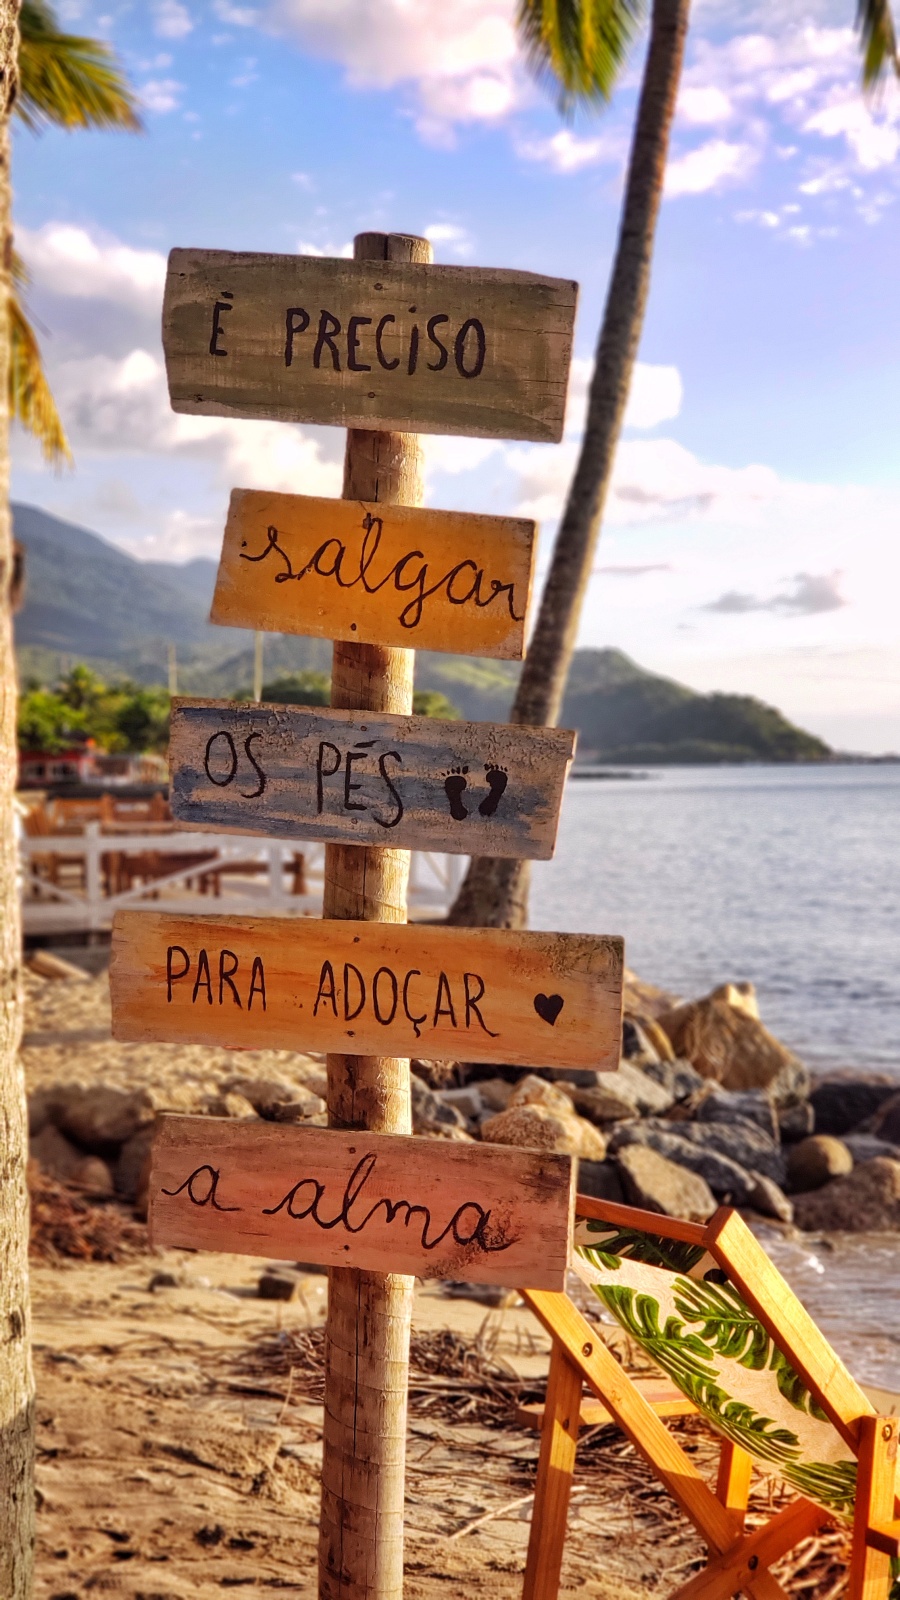 É PRECISO
salgar
OS PÉS
PARA ADOÇAR
a alma